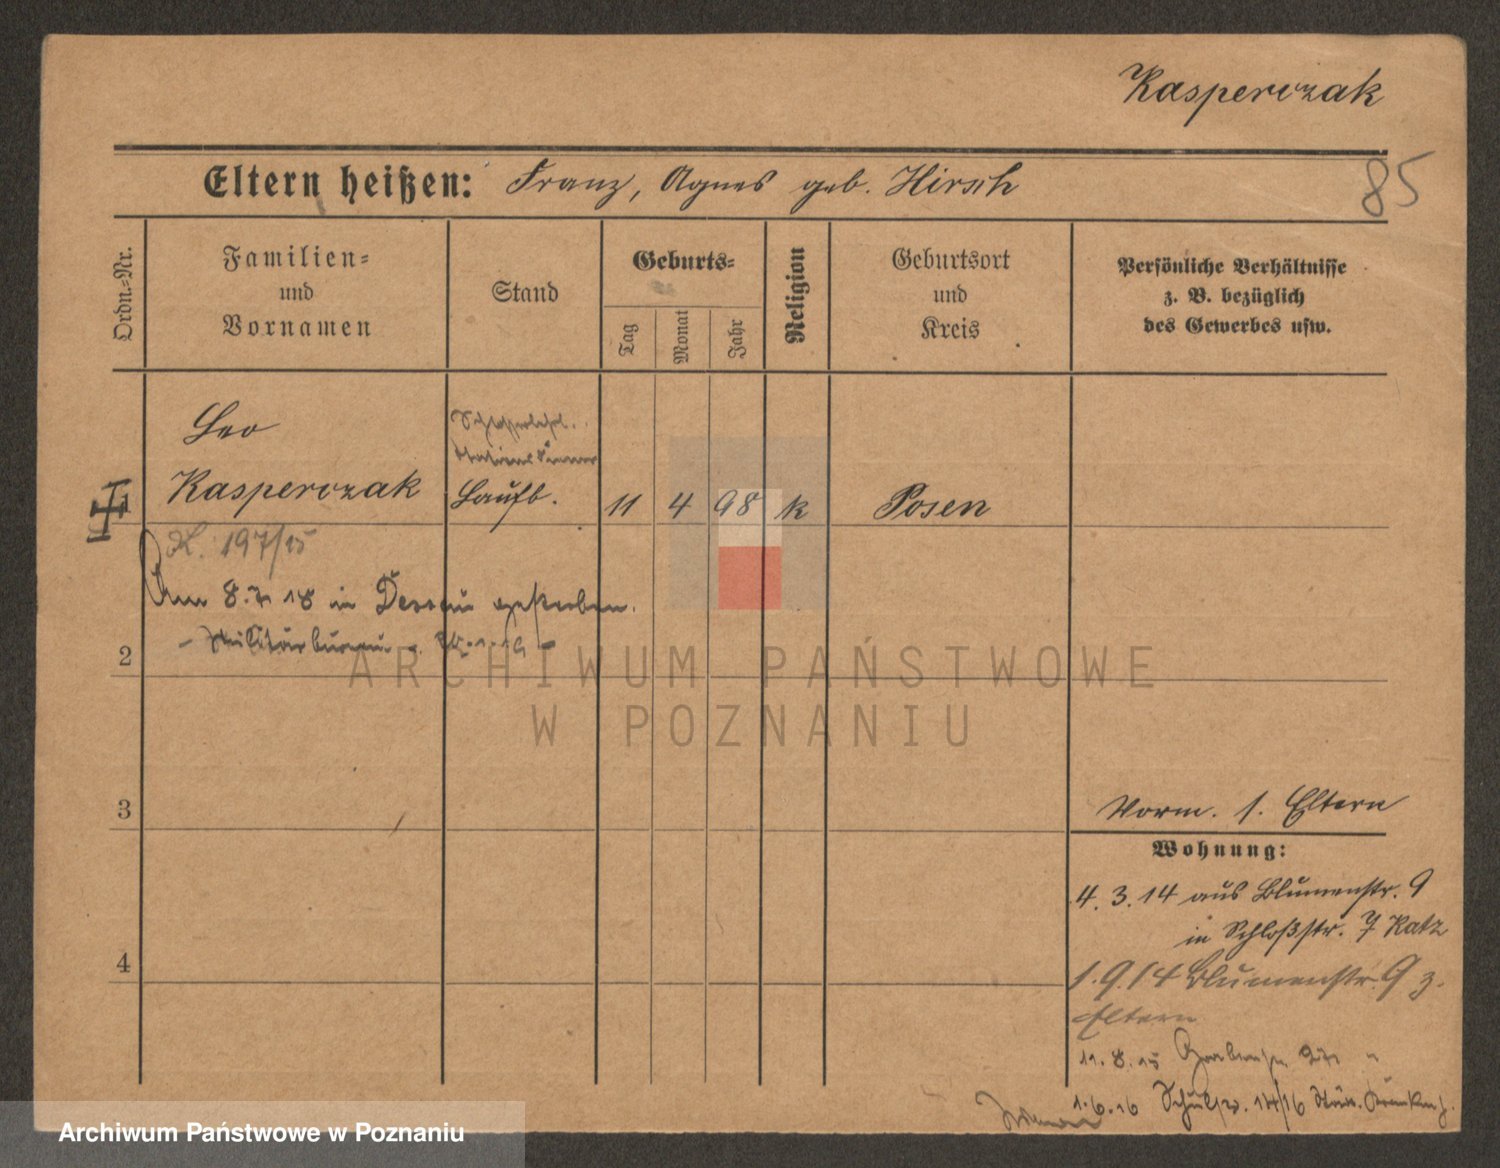 Kasperczak
85
Eltern heißen: Franz, Agnes geb. Hirsch
Ordn.-Nr.
Familien-
und
Vornamen
Stand
Geburts-
Tag
Monat
Jahr
Religion
Geburtsort
und
Kreis
Persönliche Verhältnisse
z. B. bezüglich
des Gewerbes usw.
Leo
Schlosserlehrl.
Kasperczak
Laufb.
11 4 98 k Posen
K. 197/15
Am 8.7.18 in Dessau gestorben.
- Militärbureau
2
ARCHIWUM PAŃSTWOWE
W POZNANIU
3
Vorm. s. Eltern
Wohnung:
4.3.14 aus Blumenstr. 9
in Schloßstr. 7 Ratz
4
1.9.14 Blumenstr. 9 z.
Eltern
11.8.15 Grabenstr. 27 "
1.6.16 Schulstr. 14/16 Städt. Krankenh.
Archiwum Państwowe w Poznaniu